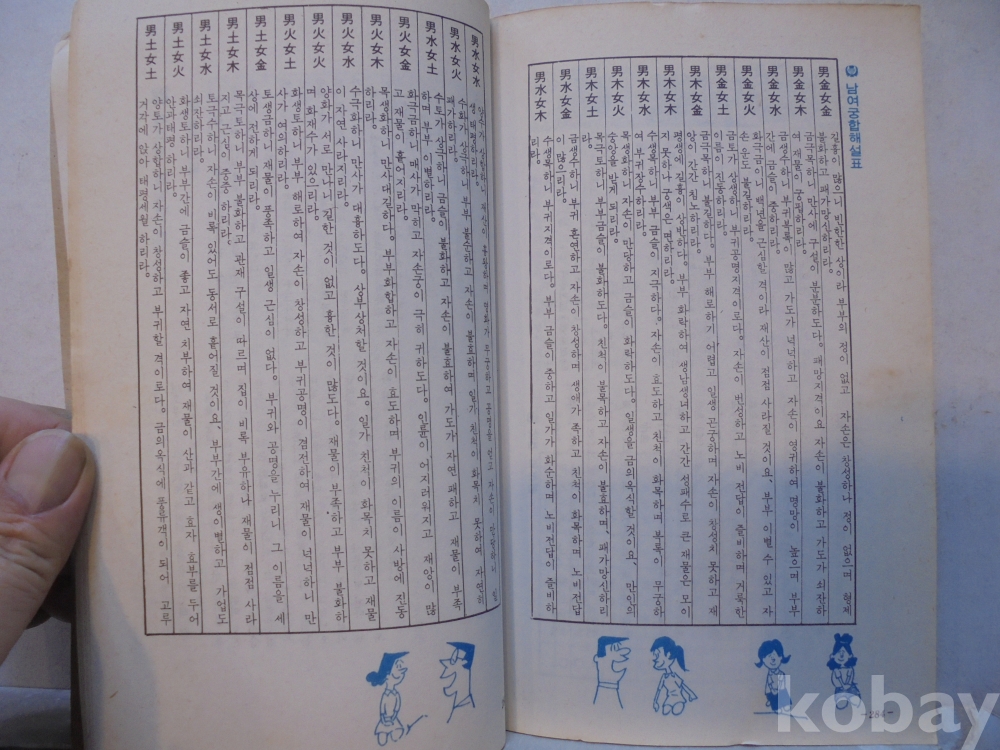 남여궁합해설표
男金女金
길흉이 많으니 빈한한 상이라 부부의 정이 없고 자손은 창성하나 정이 없으며 형제
불화하고 패가망신하리라.
男金女木
금극목하니 만사에 구설이 분분하도다. 패망지격이요 자손이 불화하고 가도가 쇠잔하
여 재물이 궁핍하리라.
男金女水
금생수하니 부귀복록이 많고 가도가 넉넉하고 자손이 영귀하여 명망이 높으며 부부
간에 금슬이 중하리라.
男金女火
화극금이니 백년을 근심할 격이라 재산이 점점 사라질 것이요, 부부 이별수 있고 자
손 운도 불길하리라.
男金女土
금토가 상생하니 부귀공명지격이로다. 자손이 번성하고 노비 전답이 즐비하며 거룩한
이름이 진동하리라.
男木女金
금극목하니 불길하다. 부부 해로하기 어렵고 일생 곤궁하며 자손이 창성치 못하고 재
앙이 간간 침노하리라.
男木女木
평생에 길흉이 상반하다. 부부 화락하여 생남생녀하고 간간 성패수로 큰 재물은 모이
지 못하나 궁색은 면하리라.
男木女水
수생목하니 부부 금슬이 지극하다. 자손이 효도하고 친척이 화목하며 복록이 무궁하
여 부귀 장수하리라.
男木女火
목생화하니 자손이 만당하고 금슬이 화락하도다. 일생을 금의옥식할 것이요, 만인의
숭앙을 받게 되리라.
男木女土
목극토하니 부부금슬이 불화하도다. 친척이 불목하고 자손이 불효하며, 패가망신하리
라.
男水女金
금생수하니 부귀 혼연하고 자손이 창성하며 생애가 족하고 친척이 화목하며 노비전답
이 많으리라.
男水女木
수생목하니 부귀지격이로다. 부부 금슬이 중하고 일가가 화순하며 노비전답이 즐비하
리라.
-284-
男水女水
男水女火
수화가 상극하니 부부 불순하고 자손이 불효하며 일가 친척이 화목치 못하여 자연히
패가하리라.
男水女土
수토가 상극하니 금슬이 불화하고 자손이 불효하여 가도가 자연 패하고 재물이 부족
하며 부부 이별하리라.
男火女金
화극금하니 매사가 막히고 자손궁이 극히 귀하도다. 인륜이 어지러워지고 재앙이 많
고 재물이 흩어지리라.
男火女木
목생화하니 만사대길하다. 부부화합하고 자손이 효도하며 부귀의 이름이 사방에 진동
하리라.
男火女水
수극화하니 만사가 대흉하도다. 상부상처할 것이요. 일가 친척이 화목치못하고 재물
이 자연 사라지리라.
男火女火
양화가 서로 만나니 길한 것이 없고 흉한 것이 많도다. 재물이 부족하고 부부 불화하
며 화재수가 있으리라.
男火女土
화생토하니 부부 해로하여 자손이 창성하고 부귀공명이 겸전하여 재물이 넉넉하니 만
사가 여의하리라.
男土女金
토생금하니 재물이 풍족하고 일생 근심이 없다. 부귀와 공명을 누리니 그 이름을 세
상에 전하게 되리라.
男土女木
목극토하니 부부 불화하고 관재 구설이 따르며 집이 비록 부유하나 재물이 점점 사라
지고 근심이 중중 하리라.
男土女水
토극수하니 자손이 비록 있어도 동서로 흩어질 것이요, 부부간에 생이별하고 가업도
쇠잔하리라.
男土女火
화생토하니 부부간에 금슬이 좋고 자연 치부하여 재물이 산과 같고 효자 효부를 두어
안과태평 하리라.
男土女土
양토가 상합하니 자손이 창성하고 부귀할 격이로다. 금의 옥식에 풍류객이 되어 고루
거각에 앉아 태평세월 하리라.
kobay